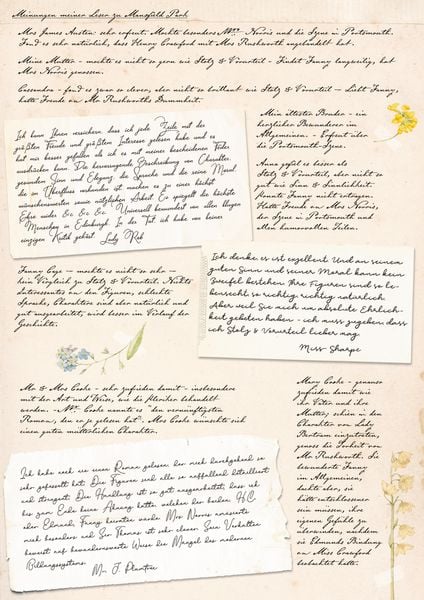 Meinungen meiner Leser zu Mansfield Park
Mrs James Austen: sehr erfreut. Mochte besonders Mrs Norris und die Szene in Portsmouth.
Fand es sehr natürlich, dass Henry Crawford mit Mrs Rushworth angebandelt hat.
Meine Mutter - mochte es nicht so gern wie Stolz & Vorurteil - Findet Fanny langweilig, hat
Mrs Norris genossen.
Cassandra - fand es zwar so clever, aber nicht so brillant wie Stolz & Vorurteil - Liebt Fanny,
hatte Freude an Mr Rushworths Dummheit.
Mein ältester Bruder - ein
herzlicher Bewunderer im
Allgemeinen. - Erfreut über
die Portsmouth-Szene.
Anna gefiel es besser als
Stolz & Vorurteil, aber nicht so
gut wie Sinn & Sinnlichkeit.
Konnte Fanny nicht ertragen.
Hatte Freude an Mrs Norris,
der Szene in Portsmouth und
allen humorvollen Teilen.
Ich kann Ihnen versichern, dass ich jede Zeile mit der
größten Freude und größtem Interesse gelesen habe und es
hat mir besser gefallen als ich es mit meiner bescheidenen Feder
ausdrücken kann. Die hervorragende Beschreibung von Charakter,
gesundem Sinn und Eleganz, die Sprache und die reine Moral
die im Überfluss vorhanden ist machen es zu einer höchst
wünschenswerten sowie nützlichen Arbeit. Es spiegelt die höchste
Ehre wider &c &c &c. Universell bewundert von allen klugen
Menschen in Edinburgh. In der Tat ich habe von keiner
einzigen Kritik gehört. Lady Rob
Fanny Cage - mochte es nicht so sehr -
kein Vergleich zu Stolz & Vorurteil. Nichts
Interessantes an den Figuren, schlechte
Sprache, Charaktere sind aber natürlich und
gut ausgearbeitet, wird besser im Verlauf der
Geschichte.
Ich denke es ist exzellent Und an seinem
guten Sinn und seiner Moral kann kein
Zweifel bestehen Ihre Figuren sind so le-
bensecht so richtig richtig natürlich
Aber weil Sie mich um absolute Ehrlich-
keit gebeten haben - ich muss zugeben dass
ich Stolz & Vorurteil lieber mag.
Miss Sharpe
Mr & Mrs Cooke - sehr zufrieden damit - insbesondere
mit der Art und Weise, wie die Kleriker behandelt
werden. - Mr Cooke nannte es "den vernünftigsten
Roman, den er je gelesen hat". Mrs Cooke wünschte sich
einen guten mütterlichen Charakter.
Mary Cooke - genauso
zufrieden damit wie
ihr Vater und ihre
Mutter; schien in den
Charakter von Lady
Bertram einzutreten,
genoss die Torheit von
Mr Rushworth. Sie
bewunderte Fanny
im Allgemeinen,
dachte aber, sie
hätte entschlossener
sein müssen, ihre
eigenen Gefühle zu
überwinden, nachdem
sie Edmunds Bindung
an Miss Crawford
beobachtet hatte.
Ich habe noch nie einen Roman gelesen der mich durchgehend so
sehr gefesselt hat Die Figuren sind alle so auffallend detailliert
und stringent Die Handlung ist so gut ausgearbeitet, dass ich
bis zum Ende keine Ahnung hatte, welcher der beiden H.C.
oder Edmund Fanny heiraten würde Mrs Norris amüsierte
mich besonders und Sir Thomas ist sehr clever Sein Verhalten
beweist auf bewundernswerte Weise die Mängel des modernen
Bildungssystems. Mr J. Plumptre